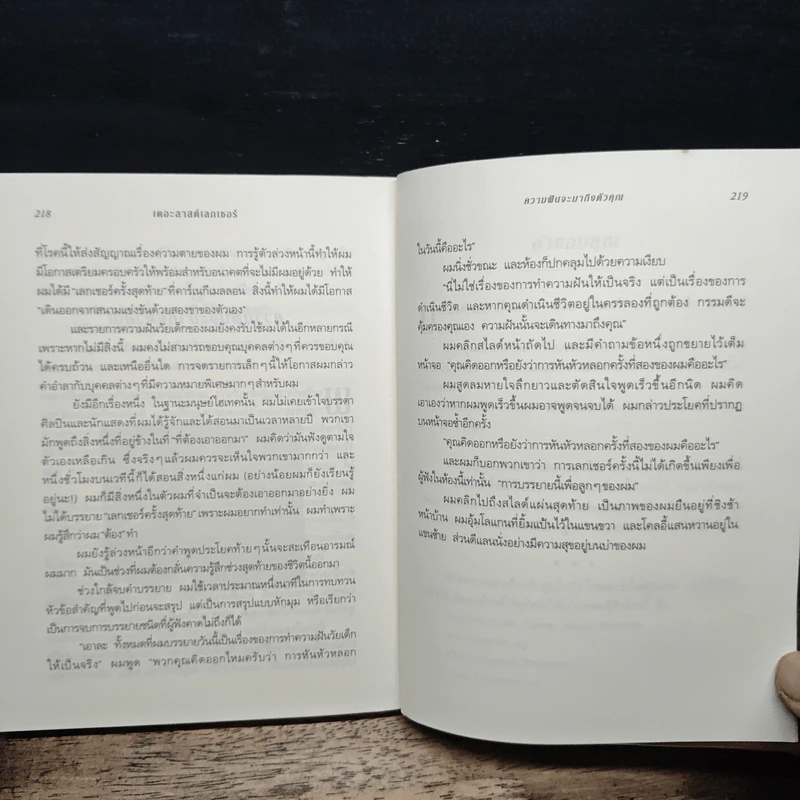 218
เดอะลาสต์เลกเชอร์
ที่โรคนี้ให้ส่งสัญญาณเรื่องความตายของผม การรู้ตัวล่วงหน้านี้ทำให้ผม
มีโอกาสเตรียมครอบครัวให้พร้อมสำหรับอนาคตที่จะไม่มีผมอยู่ด้วย ทำให้
ผมได้มี “เลกเชอร์ครั้งสุดท้าย” ที่คาร์เนกีเมลลอน สิ่งนี้ทำให้ผมได้มีโอกาส
“เดินออกจากสนามแข่งขันด้วยสองขาของตัวเอง”
และรายการความฝันวัยเด็กของผมยังคงรับใช้ผมได้ในอีกหลายกรณี
เพราะหากไม่มีสิ่งนี้ ผมคงไม่สามารถขอบคุณบุคคลต่างๆที่ควรขอบคุณ
ได้ครบถ้วน และเหนืออื่นใด การจดรายการเล็กๆนี้ให้โอกาสผมกล่าว
คำอำลากับบุคคลต่างๆที่มีความหมายพิเศษมากๆสำหรับผม
ยังมีอีกเรื่องหนึ่ง ในฐานะมนุษย์ไฮเทคนั้น ผมไม่เคยเข้าใจบรรดา
ศิลปินและนักแสดงที่ผมได้รู้จักและได้สอนมาเป็นเวลาหลายปี พวกเขา
มักพูดถึงสิ่งหนึ่งที่อยู่ข้างในที่ “ที่ต้องเอาออกมา” ผมคิดว่ามันฟังดูตามใจ
ตัวเองเหลือเกิน ซึ่งจริงๆแล้วผมควรจะเห็นใจพวกเขามากกว่า และ
หนึ่งชั่วโมงบนเวทีนี้ก็ได้สอนสิ่งหนึ่งแก่ผม (อย่างน้อยผมก็ยังเรียนรู้
อยู่นะ!) ผมก็มีสิ่งหนึ่งในตัวผมที่จำเป็นจะต้องเอาออกมาอย่างยิ่ง ผม
ไม่ได้บรรยาย “เลกเชอร์ครั้งสุดท้าย” เพราะผมอยากทำเท่านั้น ผมทำเพราะ
ผมรู้สึกว่าผม “ต้อง” ทำ
ผมยังรู้ล่วงหน้าอีกว่าคำพูดประโยคท้ายๆนั้นจะสะเทือนอารมณ์
ผมมาก มันเป็นช่วงที่ผมต้องกลั่นความรู้สึกช่วงสุดท้ายของชีวิตนี้ออกมา
ช่วงใกล้จบคำบรรยาย ผมใช้เวลาประมาณหนึ่งนาทีในการทบทวน
หัวข้อสำคัญที่พูดไปก่อนจะสรุป แต่เป็นการสรุปแบบหักมุม หรือเรียกว่า
เป็นการจบการบรรยายชนิดที่ผู้ฟังคาดไม่ถึงก็ได้
“เอาละ ทั้งหมดที่ผมบรรยายวันนี้เป็นเรื่องของการทำความฝันวัยเด็ก
ให้เป็นจริง” ผมพูด “พวกคุณคิดออกไหมครับว่า การหันหัวหลอก
ความฝันจะมาถึงตัวคุณ
219
ในวันนี้คืออะไร”
ผมนิ่งชั่วขณะ และห้องก็ปกคลุมไปด้วยความเงียบ
“นี่ไม่ใช่เรื่องของการทำความฝันให้เป็นจริง แต่เป็นเรื่องของการ
ดำเนินชีวิต และหากคุณดำเนินชีวิตอยู่ในครรลองที่ถูกต้อง กรรมดีจะ
คุ้มครองคุณเอง ความฝันนั้นจะเดินทางมาถึงคุณ”
ผมคลิกสไลด์หน้าถัดไป และมีคำถามข้อหนึ่งถูกขยายไว้เต็ม
หน้าจอ “คุณคิดออกหรือยังว่าการหันหัวหลอกครั้งที่สองของผมคืออะไร”
ผมสูดลมหายใจลึกยาวและตัดสินใจพูดเร็วขึ้นอีกนิด ผมคิด
เอาเองว่าหากผมพูดเร็วขึ้นผมอาจพูดจนจบได้ ผมกล่าวประโยคที่ปรากฏ
บนหน้าจอซ้ำอีกครั้ง
“คุณคิดออกหรือยังว่าการหันหัวหลอกครั้งที่สองของผมคืออะไร”
และผมก็บอกพวกเขาว่า การเลกเชอร์ครั้งนี้ไม่ได้เกิดขึ้นเพียงเพื่อ
ผู้ฟังในห้องนี้เท่านั้น “การบรรยายนี้เพื่อลูกๆของผม”
ผมคลิกไปถึงสไลด์แผ่นสุดท้าย เป็นภาพของผมยืนอยู่ที่ชิงช้า
หน้าบ้าน ผมอุ้มโลแกนที่ยิ้มแป้นไว้ในแขนขวา และโคลอี้แสนหวานอยู่ใน
แขนซ้าย ส่วนดีแลนนั่งอย่างมีความสุขอยู่บนบ่าของผม